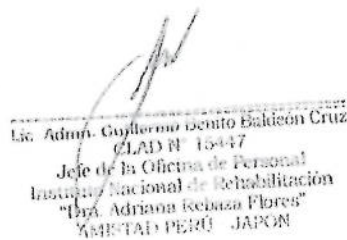 Lic. Admn. Guillermo Benito Baldeón Cruz
CLAD N° 15447
Jefe de la Oficina de Personal
Instituto Nacional de Rehabilitación
"Dra. Adriana Rebaza Flores"
AMISTAD PERÚ - JAPÓN